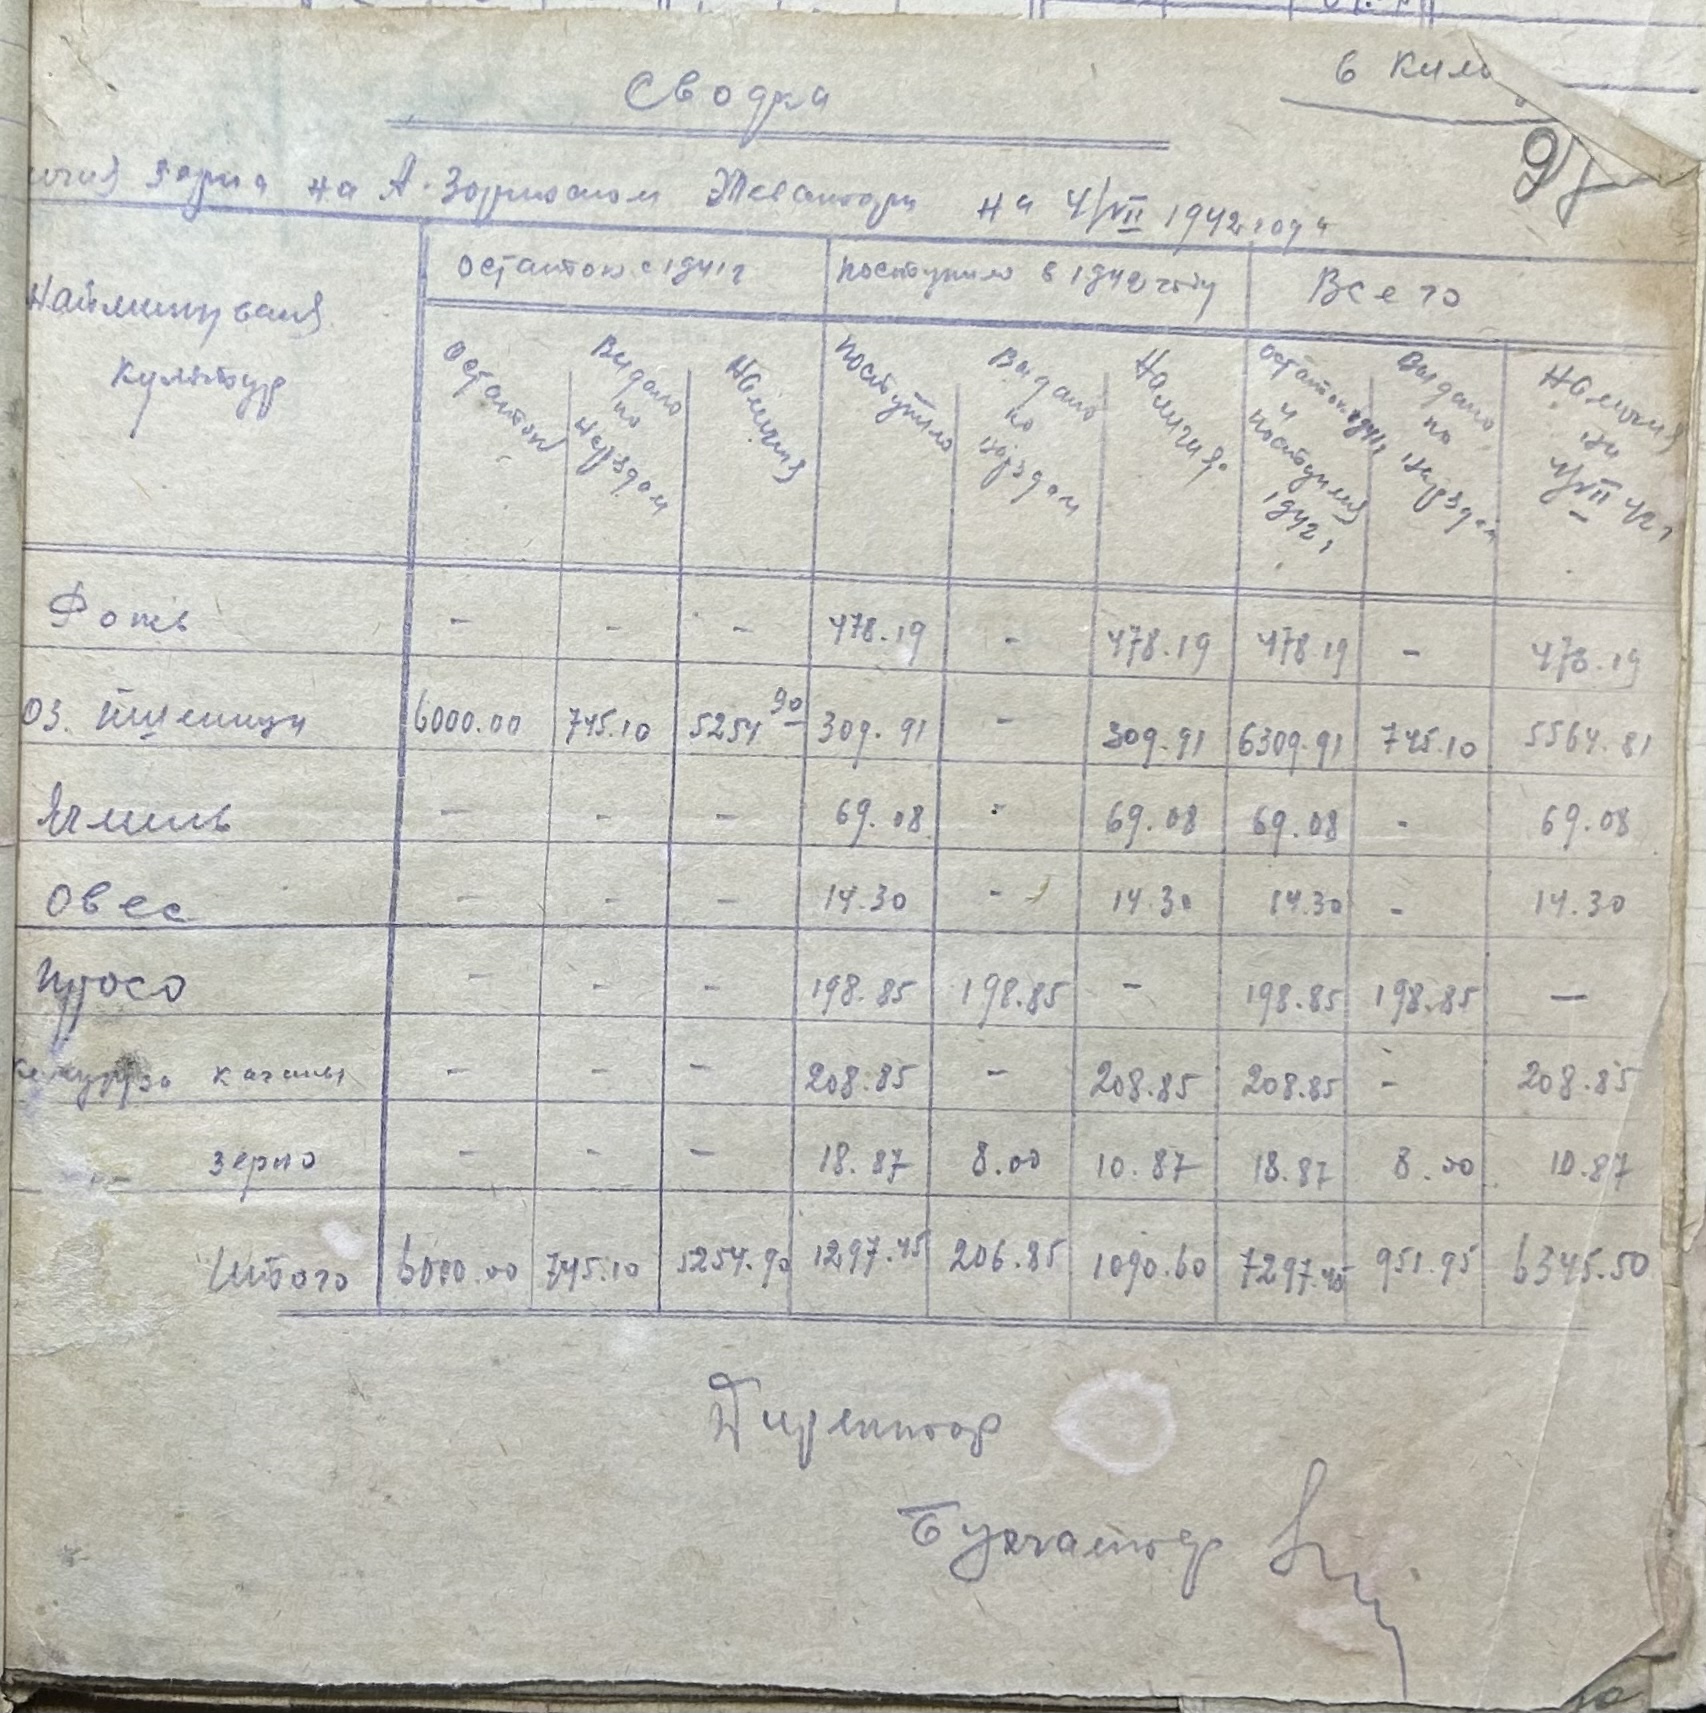 Сводка
в кило
97
зерна на А-Зерновом Элеваторе на 4/VII 1942 года
Наименуваня культур
остаток с 1941 г
поступило в 1942 году
Всего
остаток
Выдано по нарядам
Наличия
поступило
Выдано по нарядам
Наличия
остаток 1941 г и поступления 1942 г
Выдано по нарядам
Наличия на 4/VII 42 г
Рожь - - - 478.19 - 478.19 478.19 - 478.19
Оз. пшеницы 6000.00 745.10 5254.90 309.91 - 309.91 6309.91 745.10 5564.81
Ячмень - - - 69.08 - 69.08 69.08 - 69.08
Овес - - - 14.30 - 14.30 14.30 - 14.30
Просо - - - 198.85 198.85 - 198.85 198.85 -
Кукуруза качаны - - - 208.85 - 208.85 208.85 - 208.85
зерно - - - 18.87 8.00 10.87 18.87 8.00 10.87
Итого 6000.00 745.10 5254.90 1297.45 206.85 1090.60 7297.45 951.95 6345.50
Директор
Бухгалтер